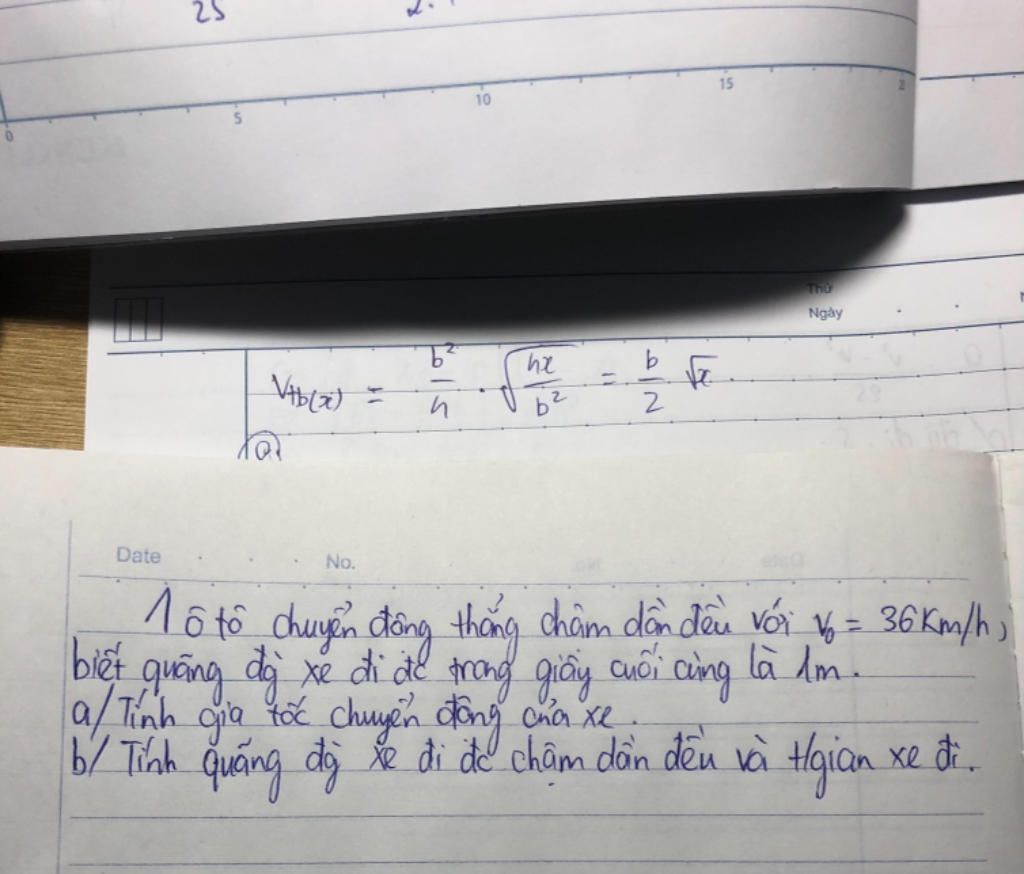 25
0 5 10 15 2
Thứ
Ngày
Vtb(x) = b²/4 . √(4x/b²) = b/2 √x.
a
Date No.
1 ô tô chuyển động thẳng chậm dần đều với v₀ = 36Km/h,
biết quãng đg xe đi đc trong giây cuối cùng là 1m.
a/ Tính gia tốc chuyển động của xe.
b/ Tính quãng đg xe đi đc chậm dần đều và t/gian xe đi.